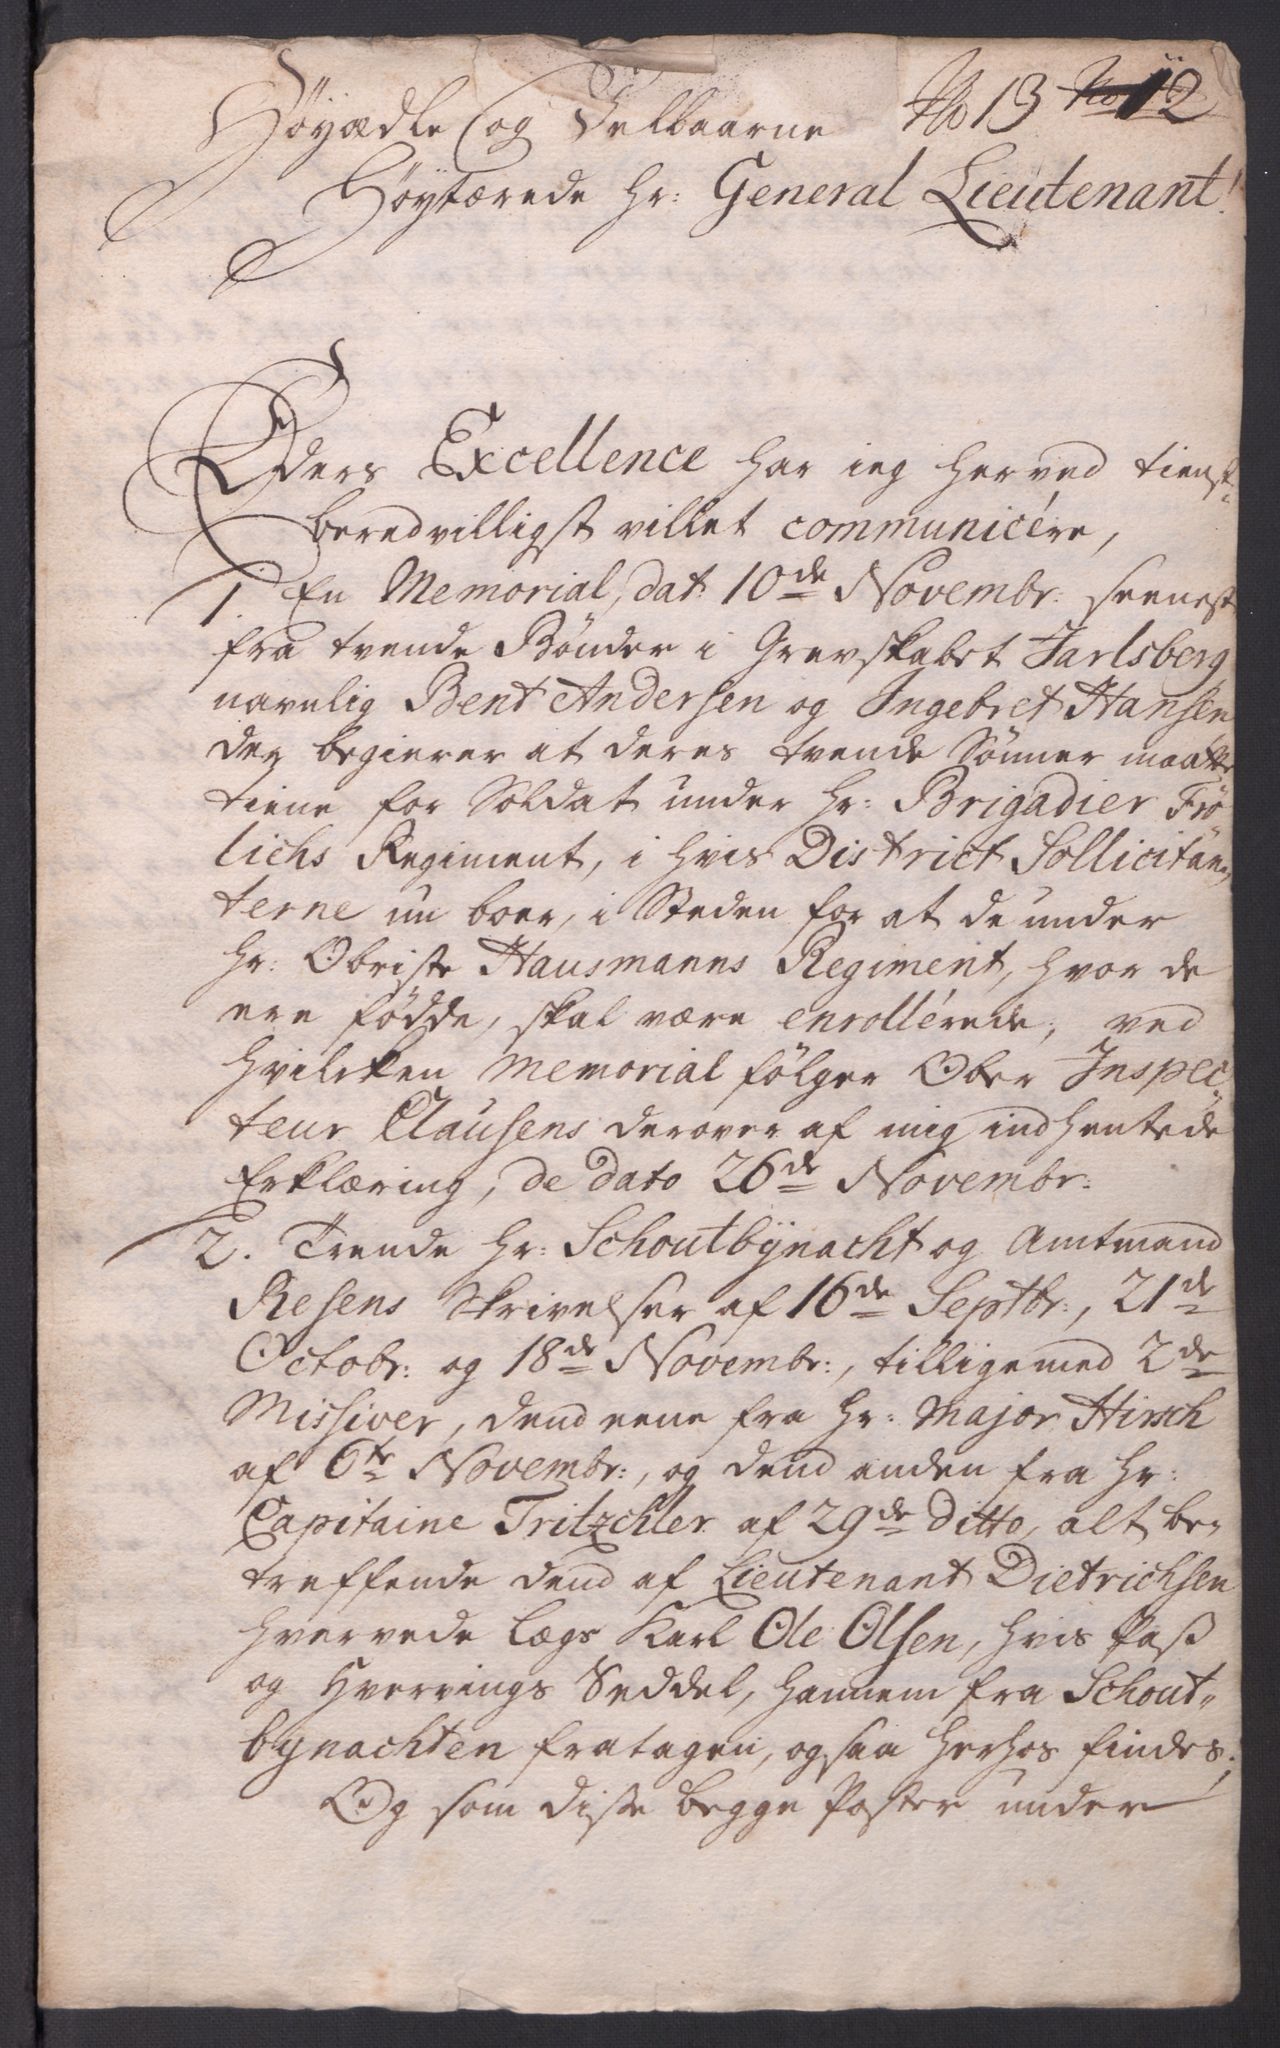 Høyædle og Velbaarne No 13 No 12
Høytærede Hr: General Lieutenant!
Eders Excellence har ieg herved tienst-
beredvilligst villet communicére,
1. En Memorial, dat: 10de Novembr: seenest
fra tvende Bønder i Grevskabet Jarlsberg
navnlig Bent Andersen og Ingebret Hansen
der begierer at deres tvende Sønner maatte
tiene for Soldat under Hr: Brigadier Frö
lichs Regiment, i hvis District Sollicitan-
terne nu boer, i Steden for at de under
Hr: Obriste Hausmanns Regiment, hvor de
ere fødde, skal være enrollérede, ved
hvilcken Memorial følger Ober Inspec-
teur Clausens derover af mig indhentede
Erklæring, de dato 26de Novembr:
2. Trende Hr: Schoutbynacht og Amtmand
Resens Skrivelser af 16de Septbr:, 21de
Octobr: og 18de Novembr:, tilligemed 2de
Missiver, dend eene fra Hr: Major Hirsch
af 6te Novembr:, og dend anden fra Hr:
Capitaine Tritzchler af 29de ditto, alt be-
treffende dend af Lieutenant Dietrichsen
hvervede Lægs Karl Ole Olsen, hvis Pass
og Hvervings Seddel, hannem fra Schout-
bynachten fratagen, ogsaa herhos findes;
Og som disse begge Poster under